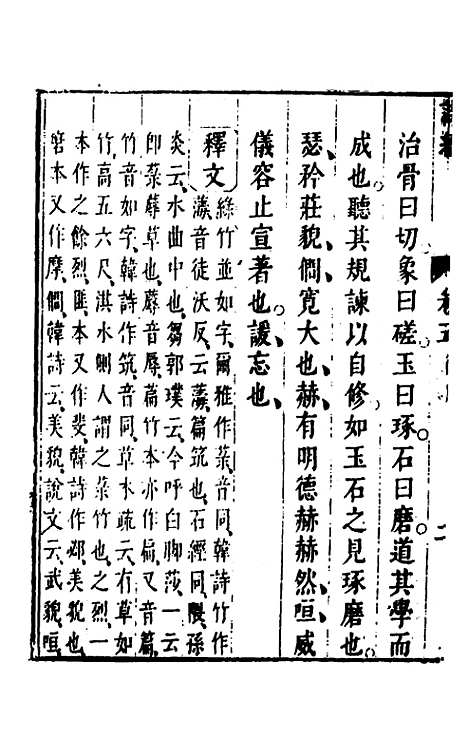 治骨曰切、象曰磋、玉曰琢、石曰磨。道其學而
成也。聽其規諫以自修、如玉石之見琢磨也。
瑟、矜莊貌、僩、寬大也、赫、有明德赫赫然、咺、威
儀容止宣著也。諼、忘也、
釋文 綠竹並如字、爾雅作菉、音同、韓詩竹作
薄、音徒沃反、云薄、萹筑也、石經同、隩、孫
炎云、水曲中也、芻郭璞云、今呼白腳莎、一云
即菉蓐草也、蓐音辱、萹竹本亦作扁、又音篇、
竹音如字、韓詩作筑、音同、草木疏云、有草如
竹、高五六尺、淇水側人謂之菉竹也、之烈、一
本作之餘烈、匪本又作斐、韓詩作邲、美貌也、
磨本又作摩、僩、韓詩云、美貌、說文云、武貌、咺、
卷五
二